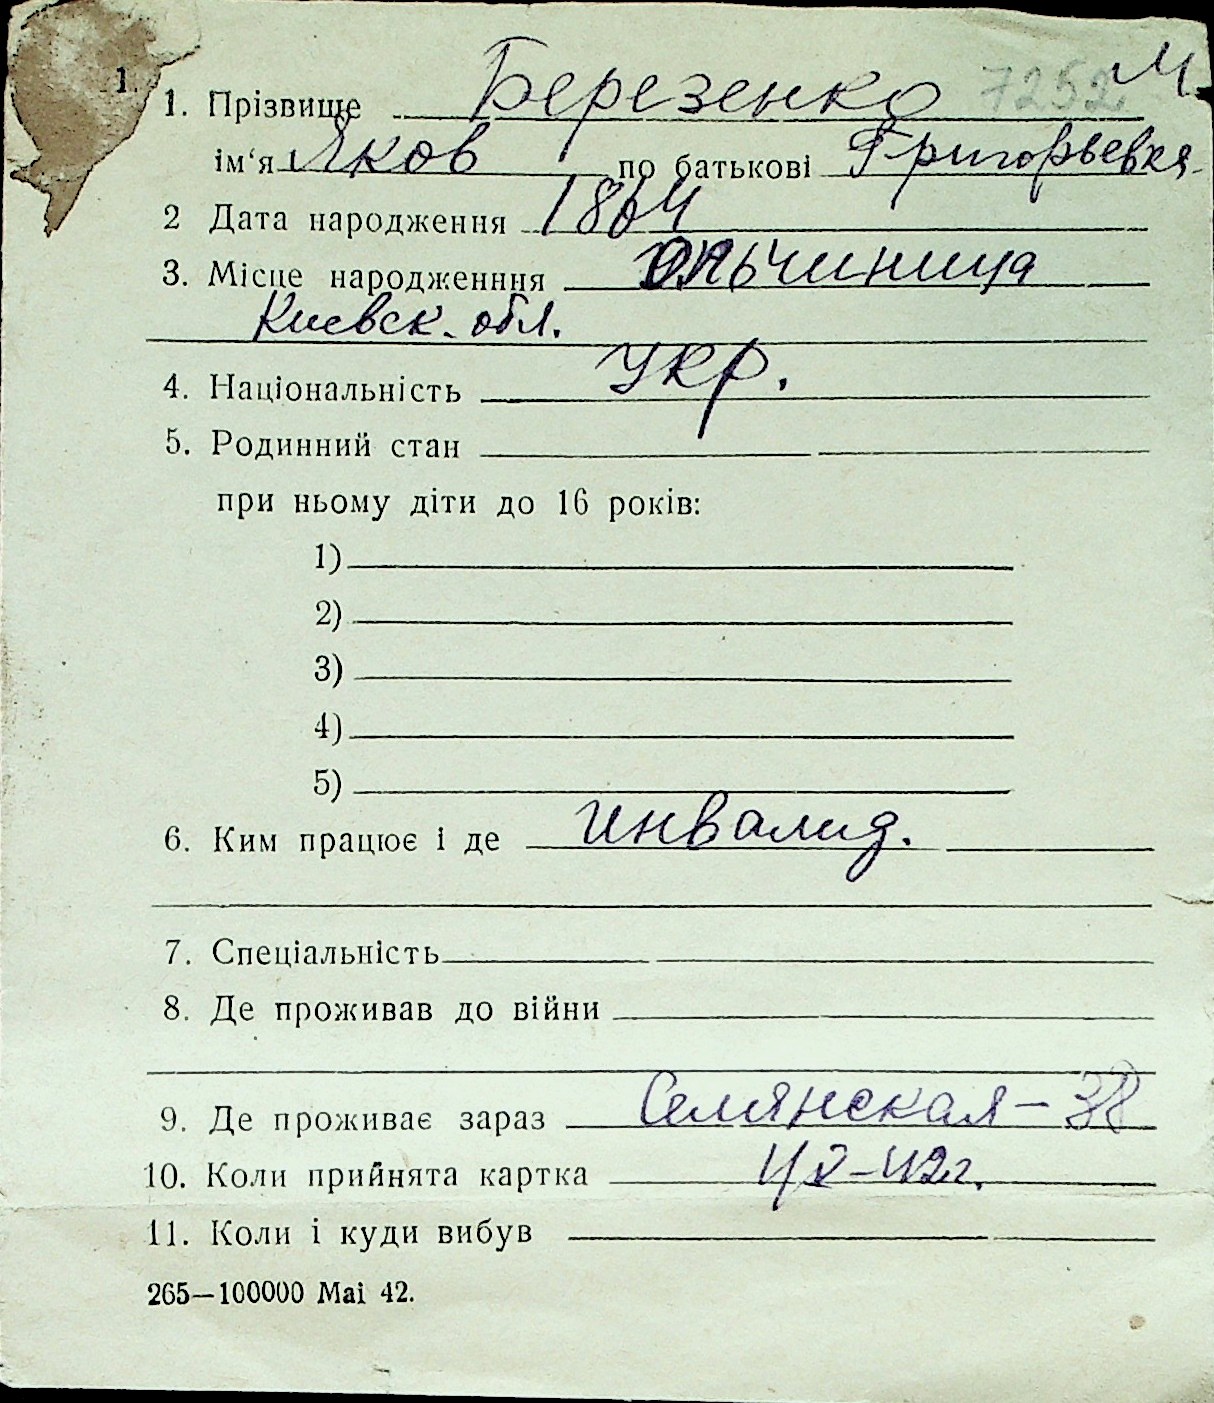 1.
1. Прізвище Березенко 7252 М
ім‘я Яков по батькові
2 Дата народження 1864
3. Місце народженння
Киевск. обл.
4. Національність укр.
5. Родинний стан
при ньому діти до 16 років:
1)
2)
3)
4)
5)
6. Ким працює і де инвалид.
7. Спеціальність
8. Де проживав до війни
9. Де проживає зараз - 38
10. Коли прийнята картка
11. Коли і куди вибув
265—100000 Mai 42.